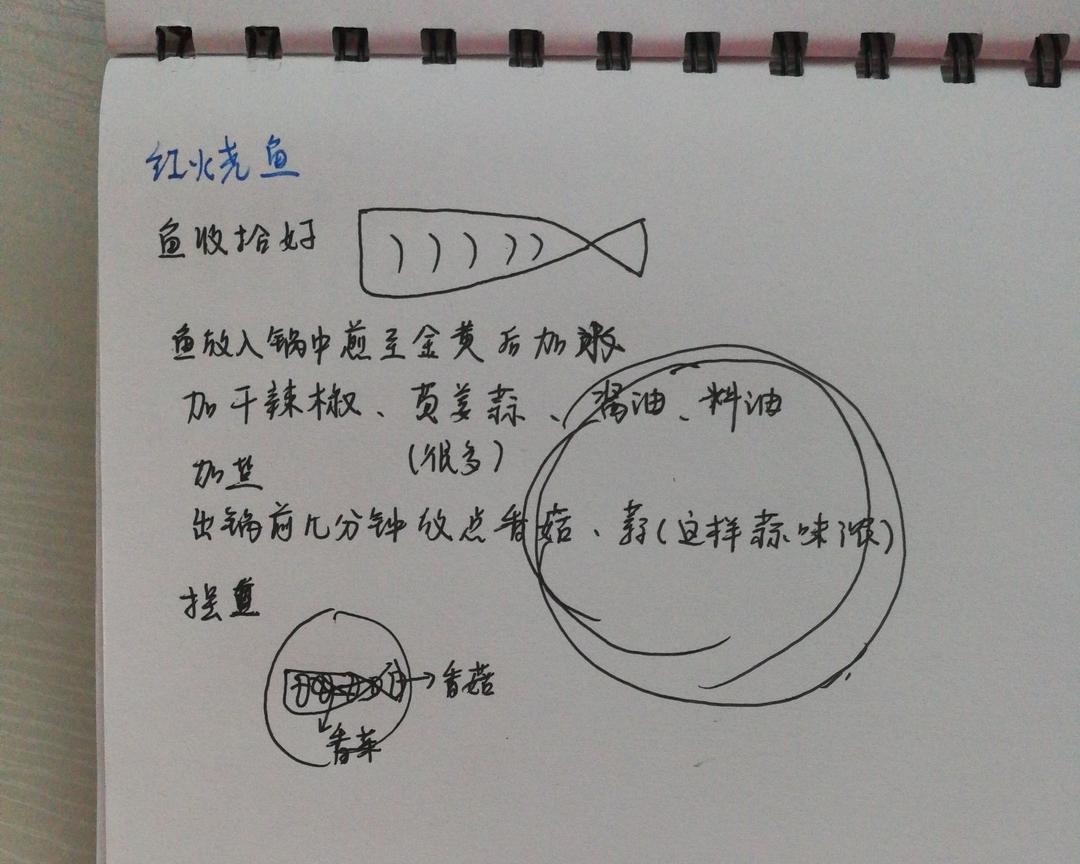 红烧鱼
鱼收拾好
鱼放入锅中煎至金黄后加水
加干辣椒、黄姜蒜、酱油、料油
(很多)
加盐
出锅前几分钟放点香菇、蒜(这样蒜味浓)
摆盘
香菇
香菜